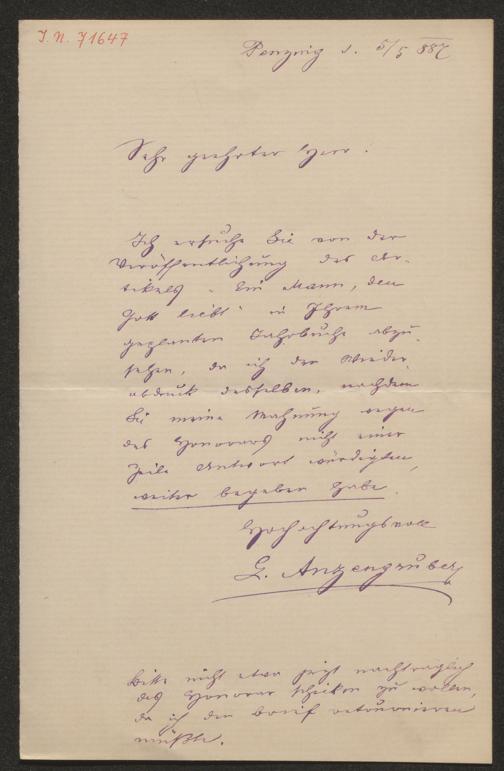 J. N. 71647
Penzing d. 5/5 887
Sehr geehrter Herr.
Ich ersuche Sie von der
Veröffentlichung des Ar-
tikels "Ein Mann, den
Gott liebt" in Ihrem
geplanten Jahrbuche abzu-
sehen, da ich den Wieder-
abdruck desselben, nachdem
Sie meine Mahnung wegen
des Honorars nicht einer
Zeile Antwort würdigten,
weiter begeben habe.
Hochachtungsvoll
L. Anzengruber
Bitte nicht etwa jetzt nachträglich
das Honorar schicken zu wollen,
da ich den Brief retournieren
müßte.